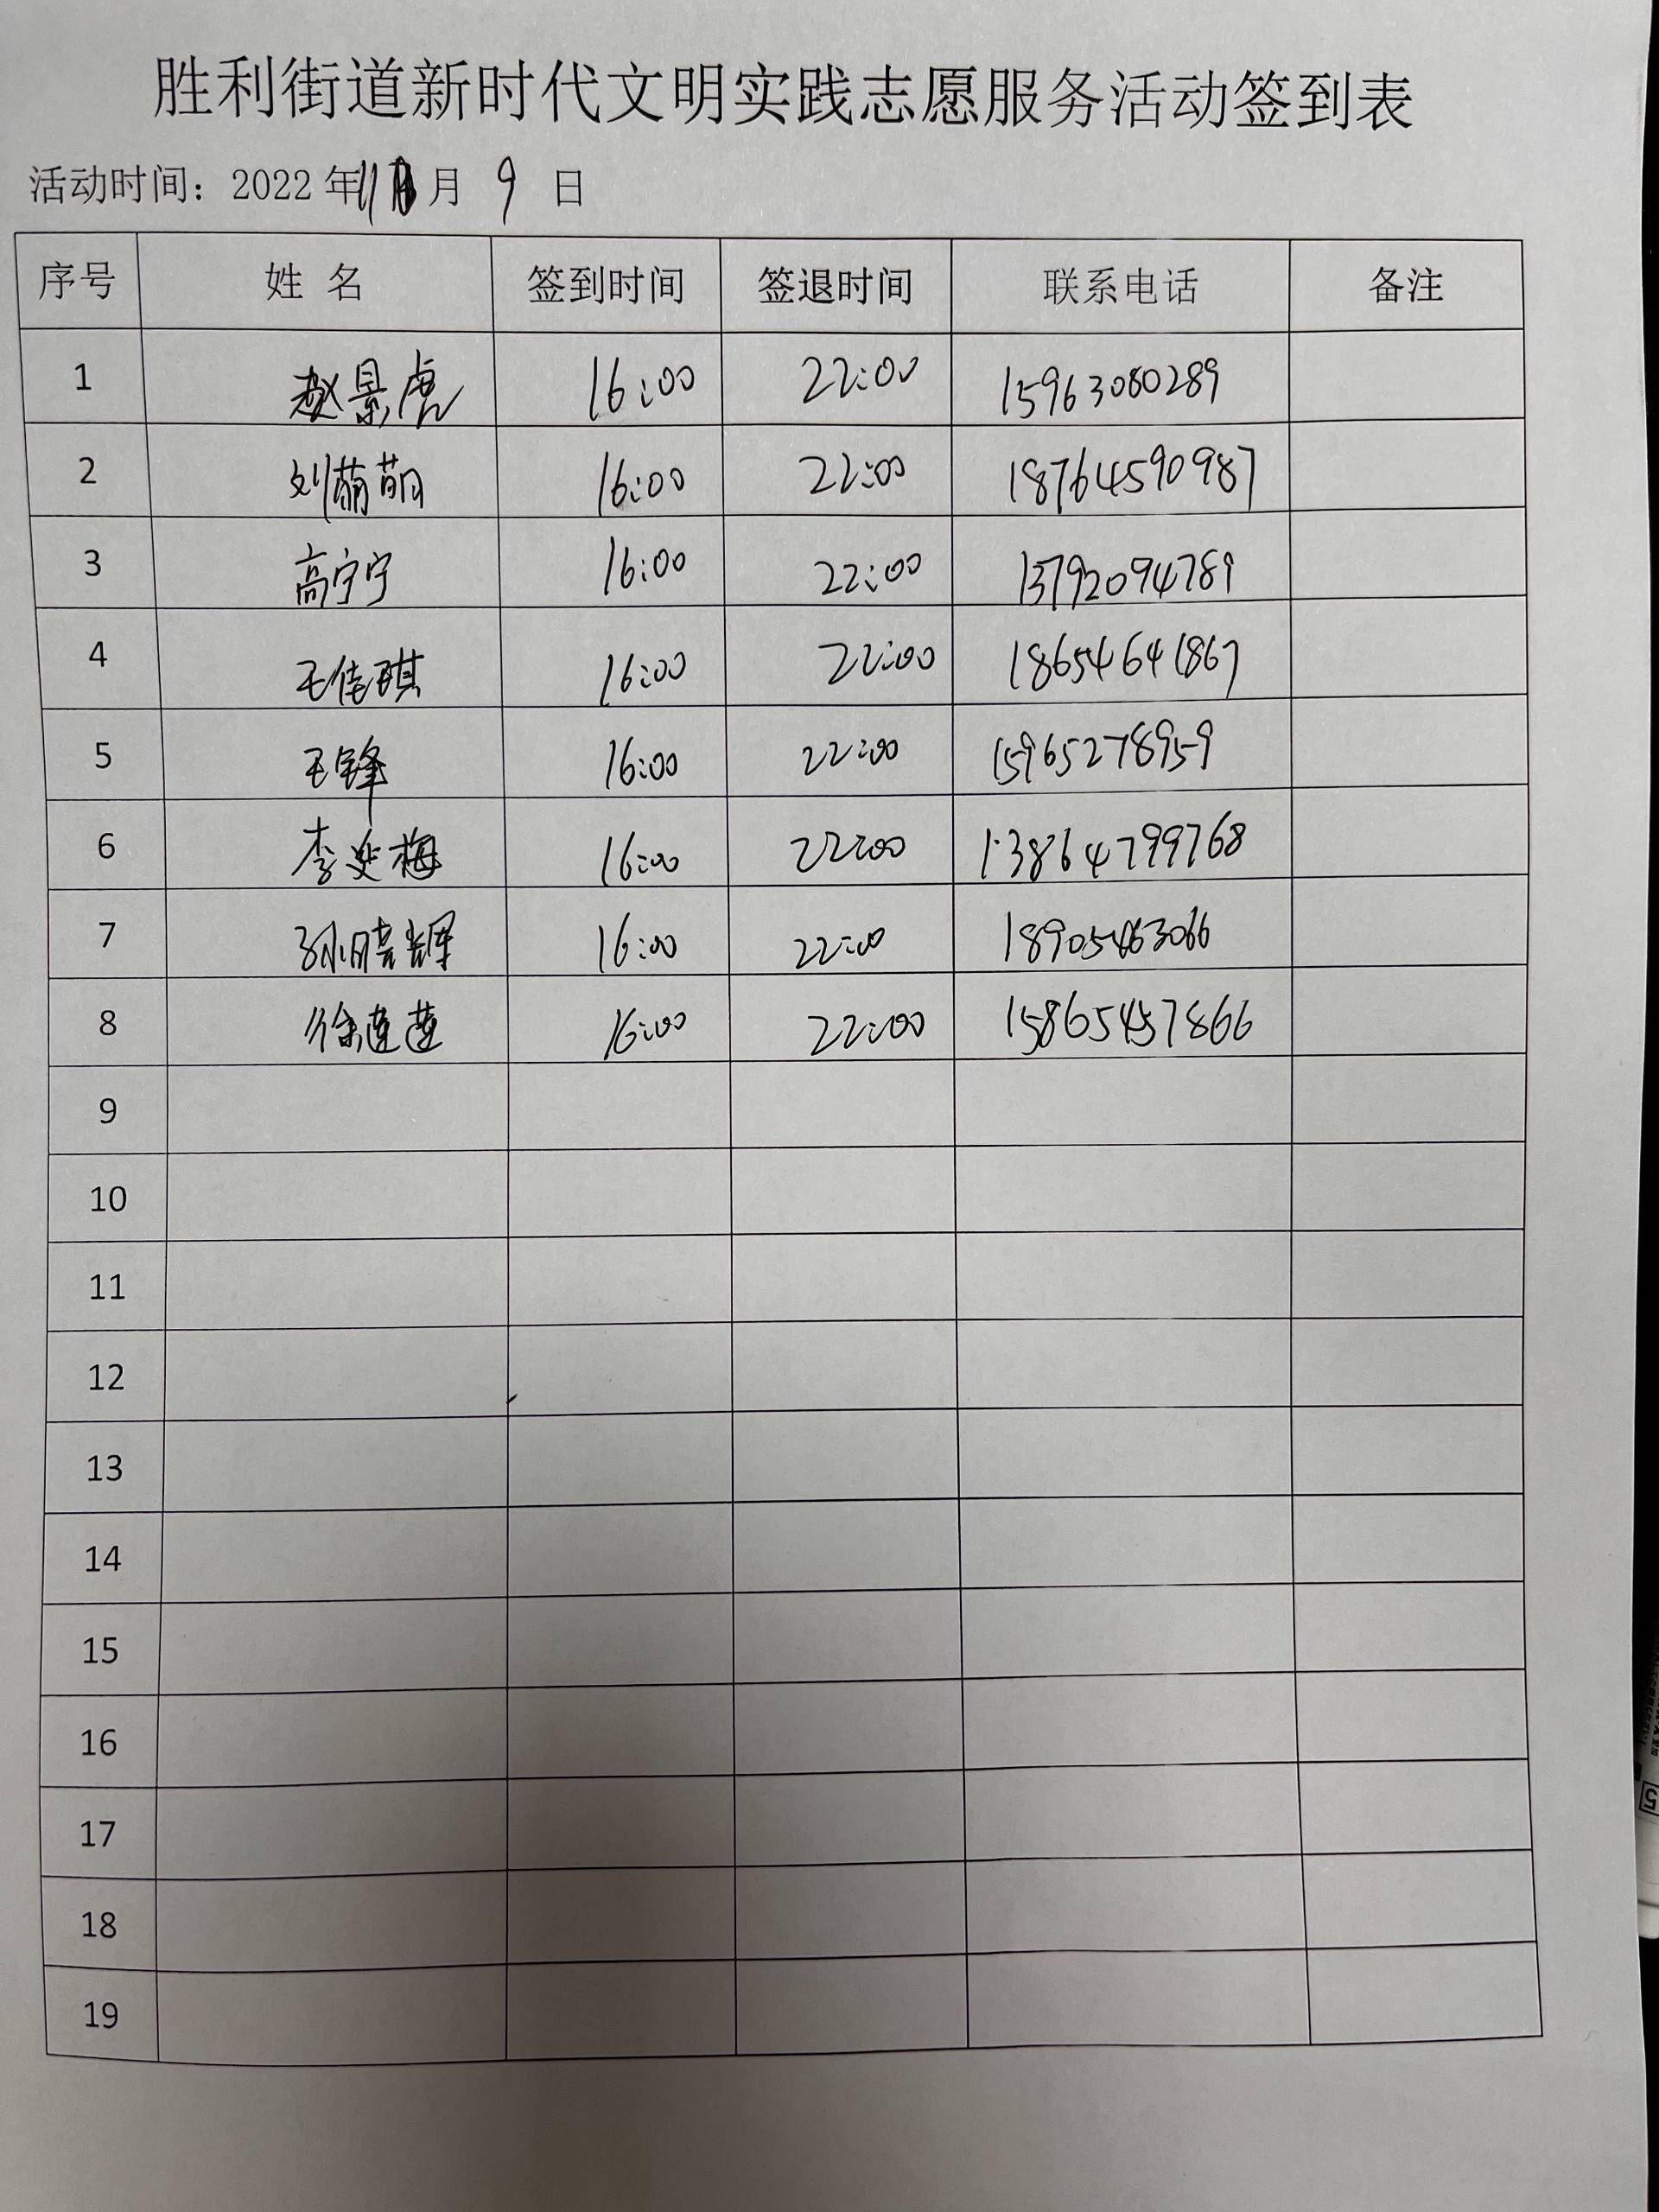 胜利街道新时代文明实践志愿服务活动签到表
活动时间：2022年11月 9 日
序号 姓 名 签到时间 签退时间 联系电话 备注
1 赵景虎 16:00 22:00 15963080289
2 刘萌萌 16:00 22:00 18764590987
3 高宁宁 16:00 22:00 13792094789
4 王佳琪 16:00 22:00 18654641867
5 王锋 16:00 22:00 15965278959
6 李史梅 16:00 22:00 13864799768
7 孙晓辉 16:00 22:00 18905463066
8 徐莲莲 16:00 22:00 15865457866
9
10
11
12
13
14
15
16
17
18
19
5